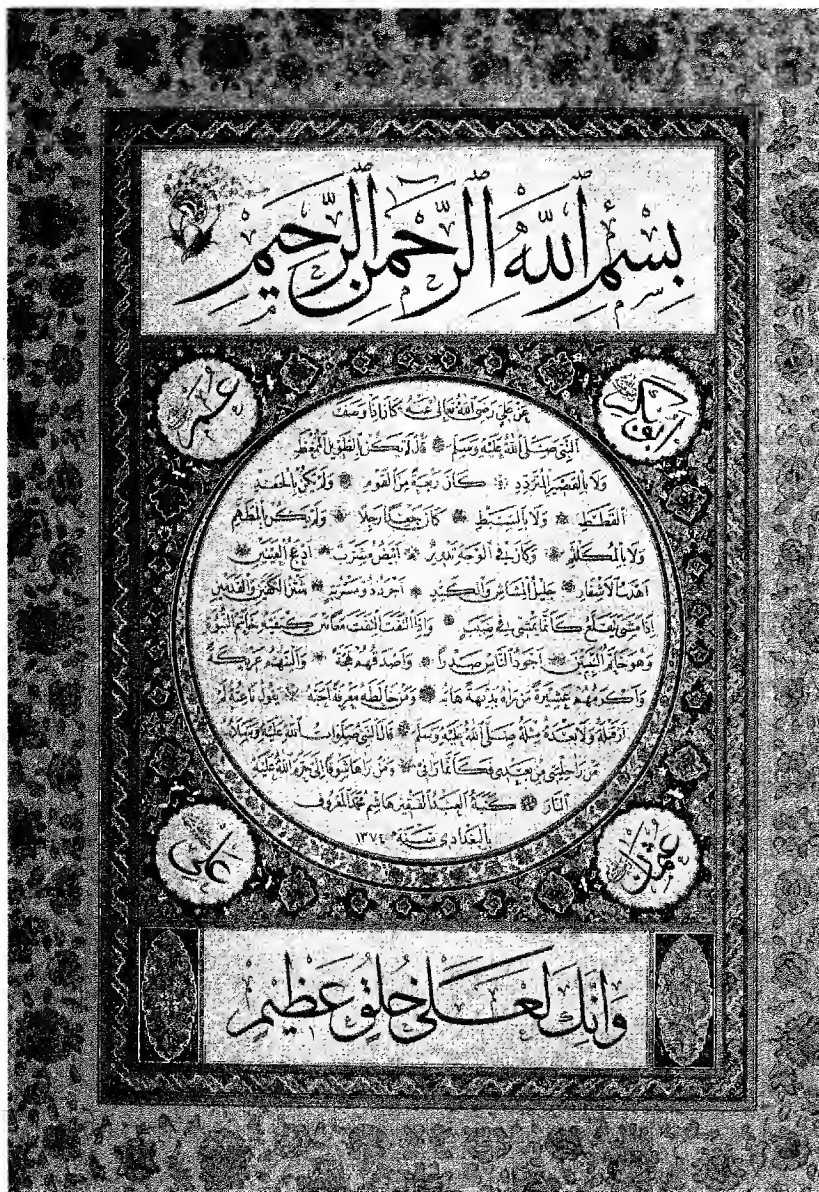 بِسْمِ اللَّهِ الرَّحْمَنِ الرَّحِيمِ
ابو بكر
عمر
عن علي رضي الله تعالى عنه كان اذا وصف
النبي صلى الله عليه وسلم قال لم يكن بالطويل الممغط
ولا بالقصير المتردد كان ربعة من القوم ولم يكن بالجعد
القطط ولا بالسبط كان جعدا رجلا ولم يكن بالمطهم
ولا بالمكلثم وكان في الوجه تدوير ابيض مشرب ادعج العينين
اهدب الاشفار جليل المشاش والكتد اجرد ذو مسربة شثن الكفين والقدمين
اذا مشى يتقلع كأنما يمشي في صبب واذا التفت التفت معا بين كتفيه خاتم النبوة
وهو خاتم النبيين اجود الناس صدرا واصدقهم لهجة والينهم عريكة
واكرمهم عشيرة من رآه بديهة هابه ومن خالطه معرفة احبه يقول ناعته لم
ار قبله ولا بعده مثله صلى الله عليه وسلم قال النبي صلوات الله عليه وسلامه
من رأى حليتي من بعدي فكأنما رآني ومن رآها شوقا الي حرم الله عليه
النار كتبه العبد الفقير هاشم محمد المعروف
بالبغدادي سنة ١٣٧٤
عثمن
علي
وَإِنَّكَ لَعَلَى خُلُقٍ عَظِيمٍ